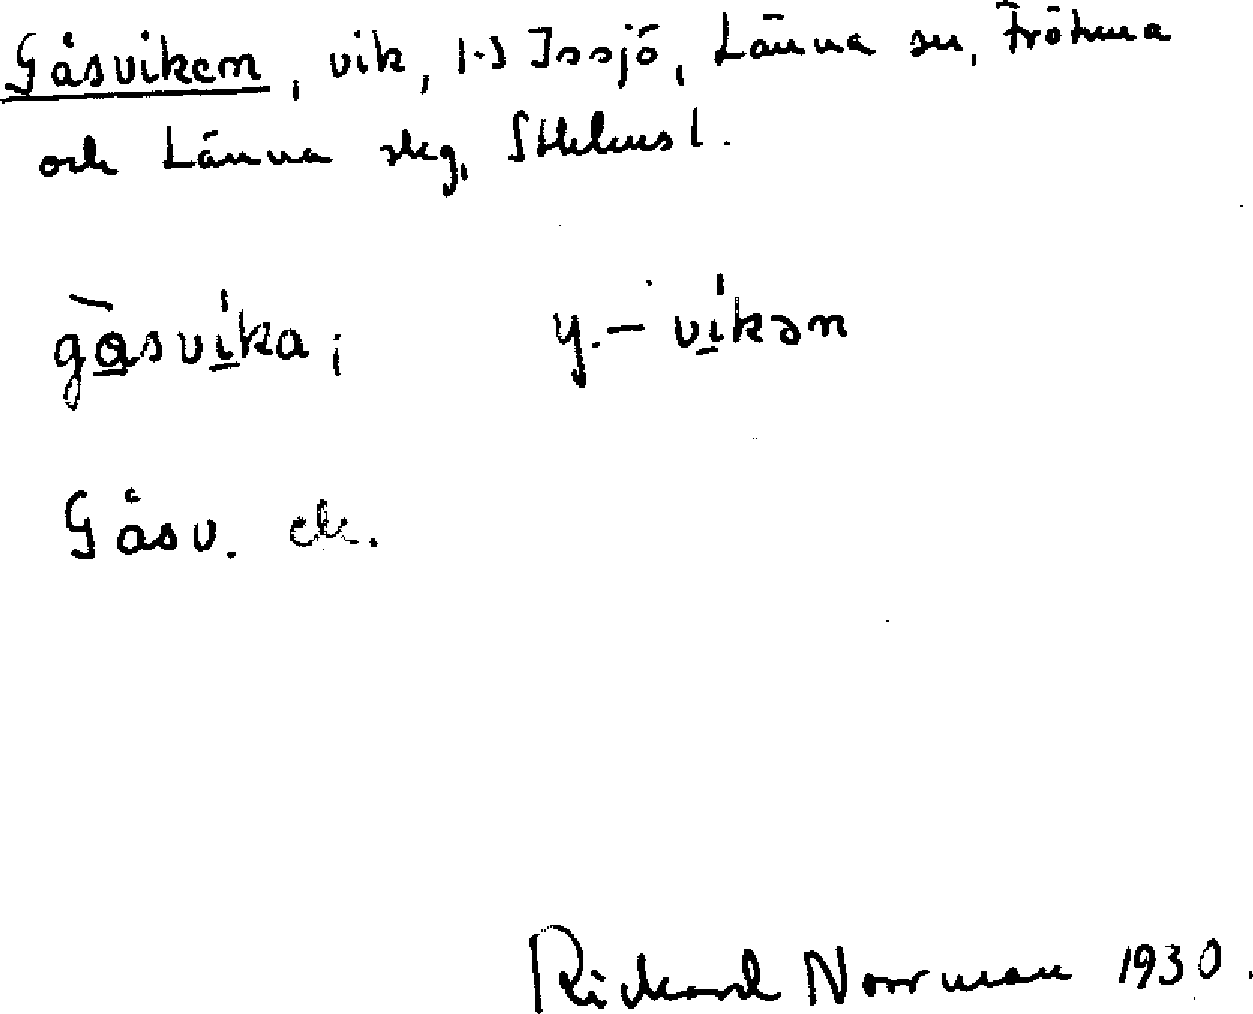 Gåsviken, vik, 1-3 Issjö, Länna sn, Frötuna
och Länna skg, Sthlms l.
gåsvika; y. – vikən
Gåsv. ek.
Rickard Norrman 1930.